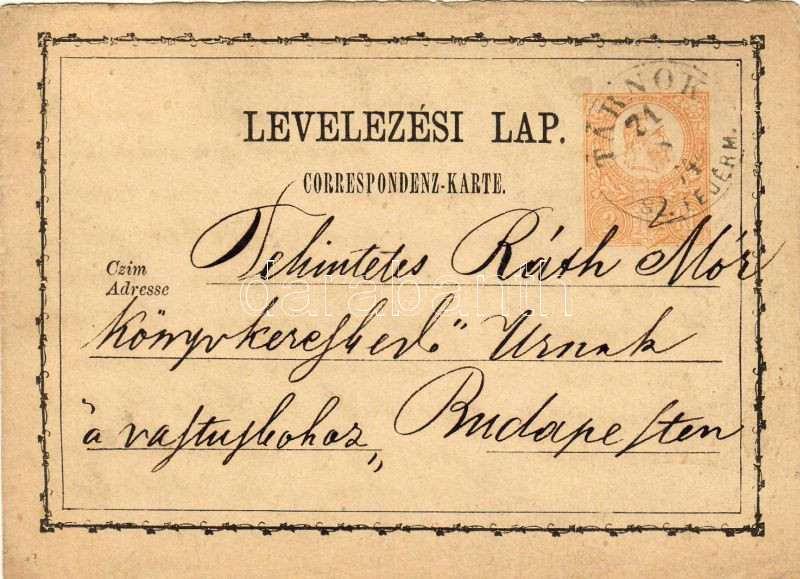 LEVELEZÉSI LAP.
CORRESPONDENZ-KARTE.
TÁRNOK
21
74
SZ. FEJÉRM.
2
Czim
Adresse
Tekintetes Ráth Mór
könyvkereskedő Urnak
"a vastuskohoz" Budapesten
darabanth